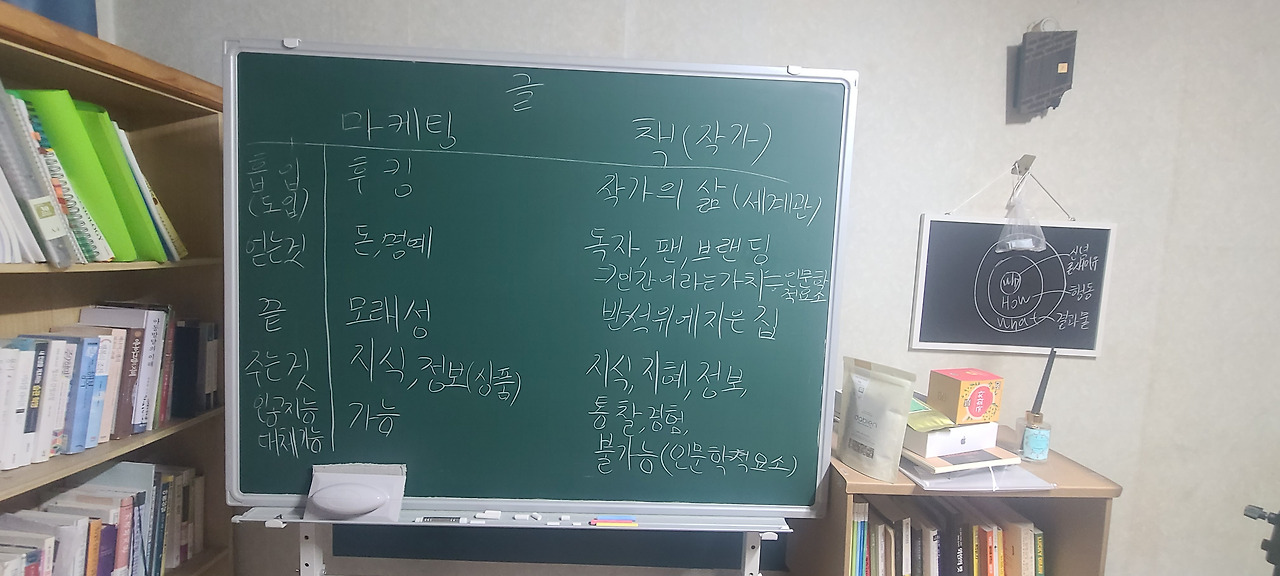 글
마케팅 책(작가)
흡입 후킹 작가의 삶 (세계관)
(도입)
얻는것 돈,명예 독자,팬,브랜딩
→인간이라는가치=인문학
적요소
끝 모래성 반석위에지은 집
주는것 지식,정보(상품) 지식,지혜,정보
인공지능 가능 통찰,경험,
대체가능 불가능(인문학적요소)
신념
why 존재이유
How 행동
What 결과물